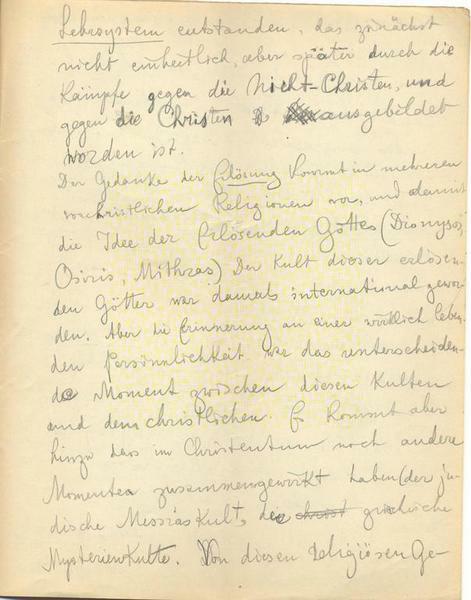 Lehrsystem entstanden, das zunächst
nicht einheitlich, aber später durch die
Kämpfe gegen die Nicht-Christen, und
gegen die Christen ausgebildet
worden ist.
Der Gedanke der Erlösung kommt in mehreren
vorchristlichen Religionen vor, und damit
die Idee der Erlösenden Gottes (Dionysos,
Osiris, Mithras) Der Kult dieser erlösen-
den Götter war damals international gewor-
den. Aber die Erinnerung an einer wirklich leben-
den Persönnlichkeit war das unterscheiden-
de Moment zwischen diesen Kulten
und dem christlichen. Es kommt aber
hinzu dass im Christentum noch andere
Momenten zusammengewirkt haben (der jü-
dische Messias Kult, die christ griechische
Mysterienkulte. Von diesen religiösen Ge-